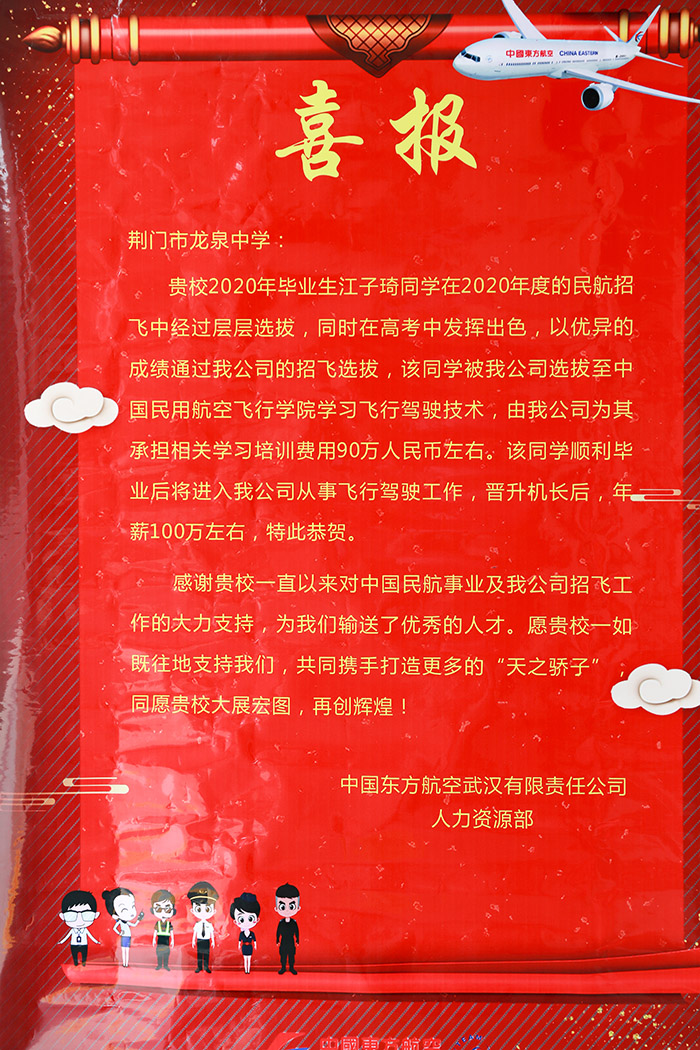 中國東方航空 CHINA EASTERN
喜报
荆门市龙泉中学：
贵校2020年毕业生江子琦同学在2020年度的民航招
飞中经过层层选拔，同时在高考中发挥出色，以优异的
成绩通过我公司的招飞选拔，该同学被我公司选拔至中
国民用航空飞行学院学习飞行驾驶技术，由我公司为其
承担相关学习培训费用90万人民币左右。该同学顺利毕
业后将进入我公司从事飞行驾驶工作，晋升机长后，年
薪100万左右，特此恭贺。
感谢贵校一直以来对中国民航事业及我公司招飞工
作的大力支持，为我们输送了优秀的人才。愿贵校一如
既往地支持我们，共同携手打造更多的“天之骄子”，
同愿贵校大展宏图，再创辉煌！
中国东方航空武汉有限责任公司
人力资源部
中國東方航空